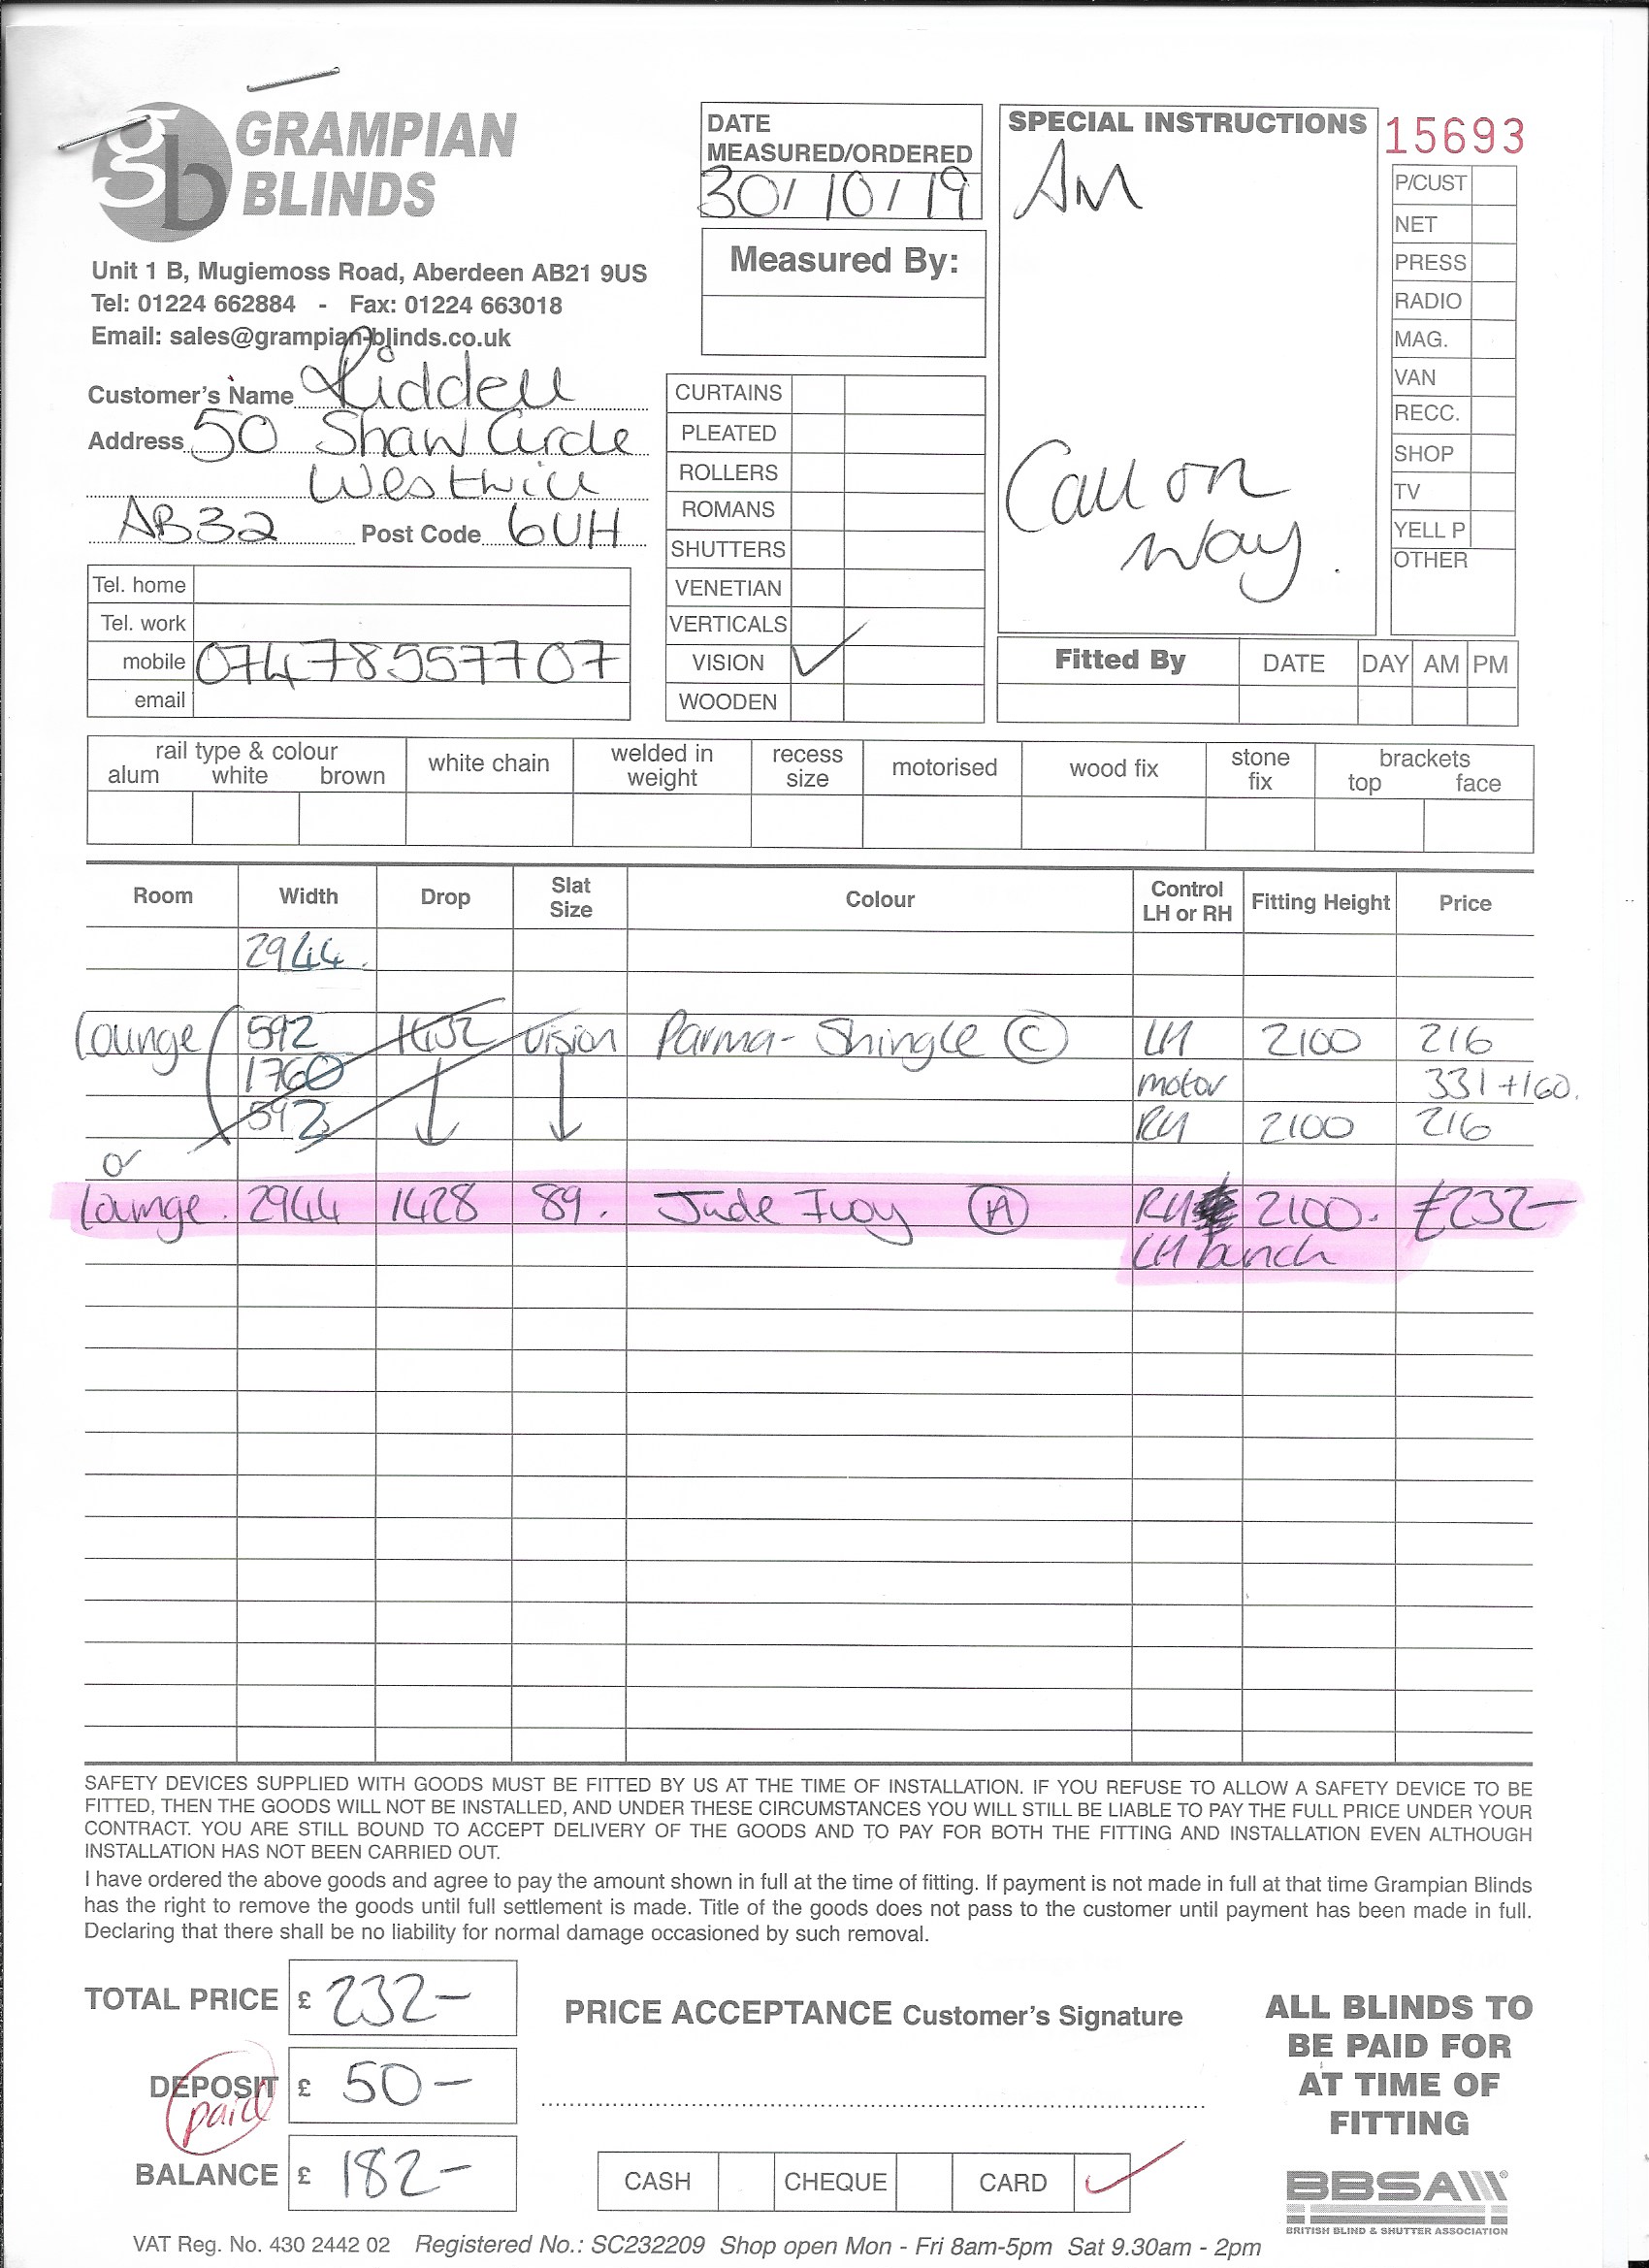 GRAMPIAN
BLINDS
Unit 1 B, Mugiemoss Road, Aberdeen AB21 9US
Tel: 01224 662884 - Fax: 01224 663018
Email: sales@grampian-blinds.co.uk
Customer's Name Riddell
Address 50 Shaw Circle
Westhill
AB32 Post Code 6UH
Tel. home
Tel. work
mobile 07478557707
email
DATE
MEASURED/ORDERED
30/10/19
Measured By:
CURTAINS
PLEATED
ROLLERS
ROMANS
SHUTTERS
VENETIAN
VERTICALS
VISION ✓
WOODEN
SPECIAL INSTRUCTIONS
AM
Call on
way.
15693
P/CUST
NET
PRESS
RADIO
MAG.
VAN
RECC.
SHOP
TV
YELL P
OTHER
Fitted By DATE DAY AM PM
rail type & colour
alum white brown
white chain
welded in
weight
recess
size
motorised
wood fix
stone
fix
brackets
top face
Room Width Drop Slat Size Colour Control LH or RH Fitting Height Price
2944.
Lounge 592 1432 vision Parma - Shingle C LH 2100 216
1760 motor 331+160.
592 RH 2100 216
or
Lounge. 2944 1428 89. Jude Ivoy A RH 2100. £232-
LH bunch
SAFETY DEVICES SUPPLIED WITH GOODS MUST BE FITTED BY US AT THE TIME OF INSTALLATION. IF YOU REFUSE TO ALLOW A SAFETY DEVICE TO BE
FITTED, THEN THE GOODS WILL NOT BE INSTALLED, AND UNDER THESE CIRCUMSTANCES YOU WILL STILL BE LIABLE TO PAY THE FULL PRICE UNDER YOUR
CONTRACT. YOU ARE STILL BOUND TO ACCEPT DELIVERY OF THE GOODS AND TO PAY FOR BOTH THE FITTING AND INSTALLATION EVEN ALTHOUGH
INSTALLATION HAS NOT BEEN CARRIED OUT.
I have ordered the above goods and agree to pay the amount shown in full at the time of fitting. If payment is not made in full at that time Grampian Blinds
has the right to remove the goods until full settlement is made. Title of the goods does not pass to the customer until payment has been made in full.
Declaring that there shall be no liability for normal damage occasioned by such removal.
TOTAL PRICE £ 232-
DEPOSIT £ 50-
paid
BALANCE £ 182-
PRICE ACCEPTANCE Customer's Signature
CASH CHEQUE CARD ✓
ALL BLINDS TO
BE PAID FOR
AT TIME OF
FITTING
BBSA
BRITISH BLIND & SHUTTER ASSOCIATION
VAT Reg. No. 430 2442 02 Registered No.: SC232209 Shop open Mon - Fri 8am-5pm Sat 9.30am - 2pm